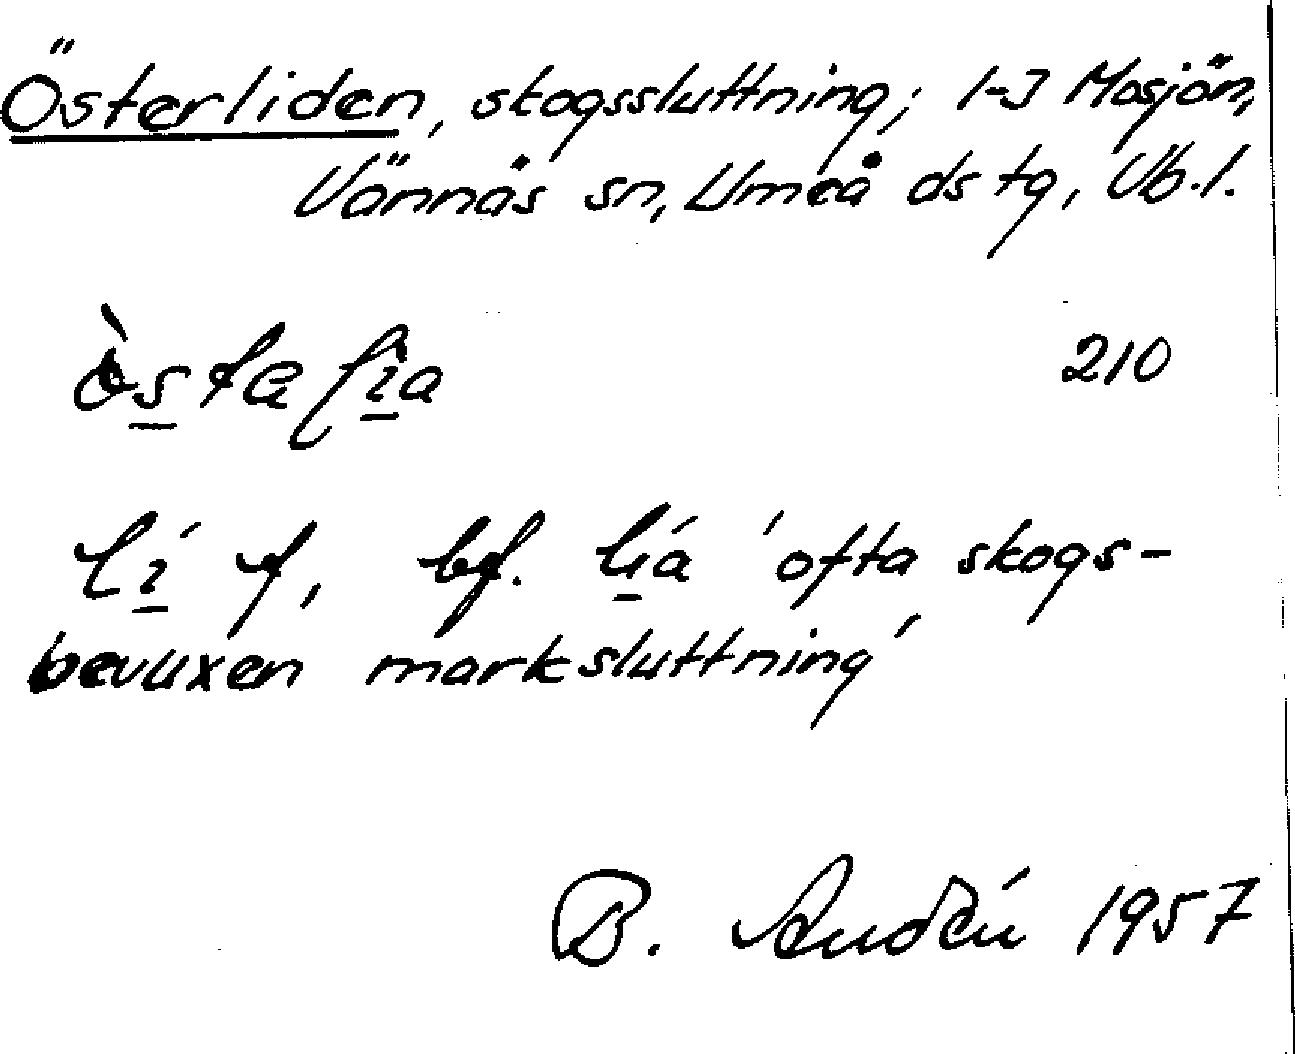 Österliden, skogssluttning; 1-3 Mosjön,
Vännäs sn, Umeå ds tg, Vb.l.
òsta lia 210
lí f, bf. lía 'ofta skogs-
bevuxen marksluttning'
B. 1957